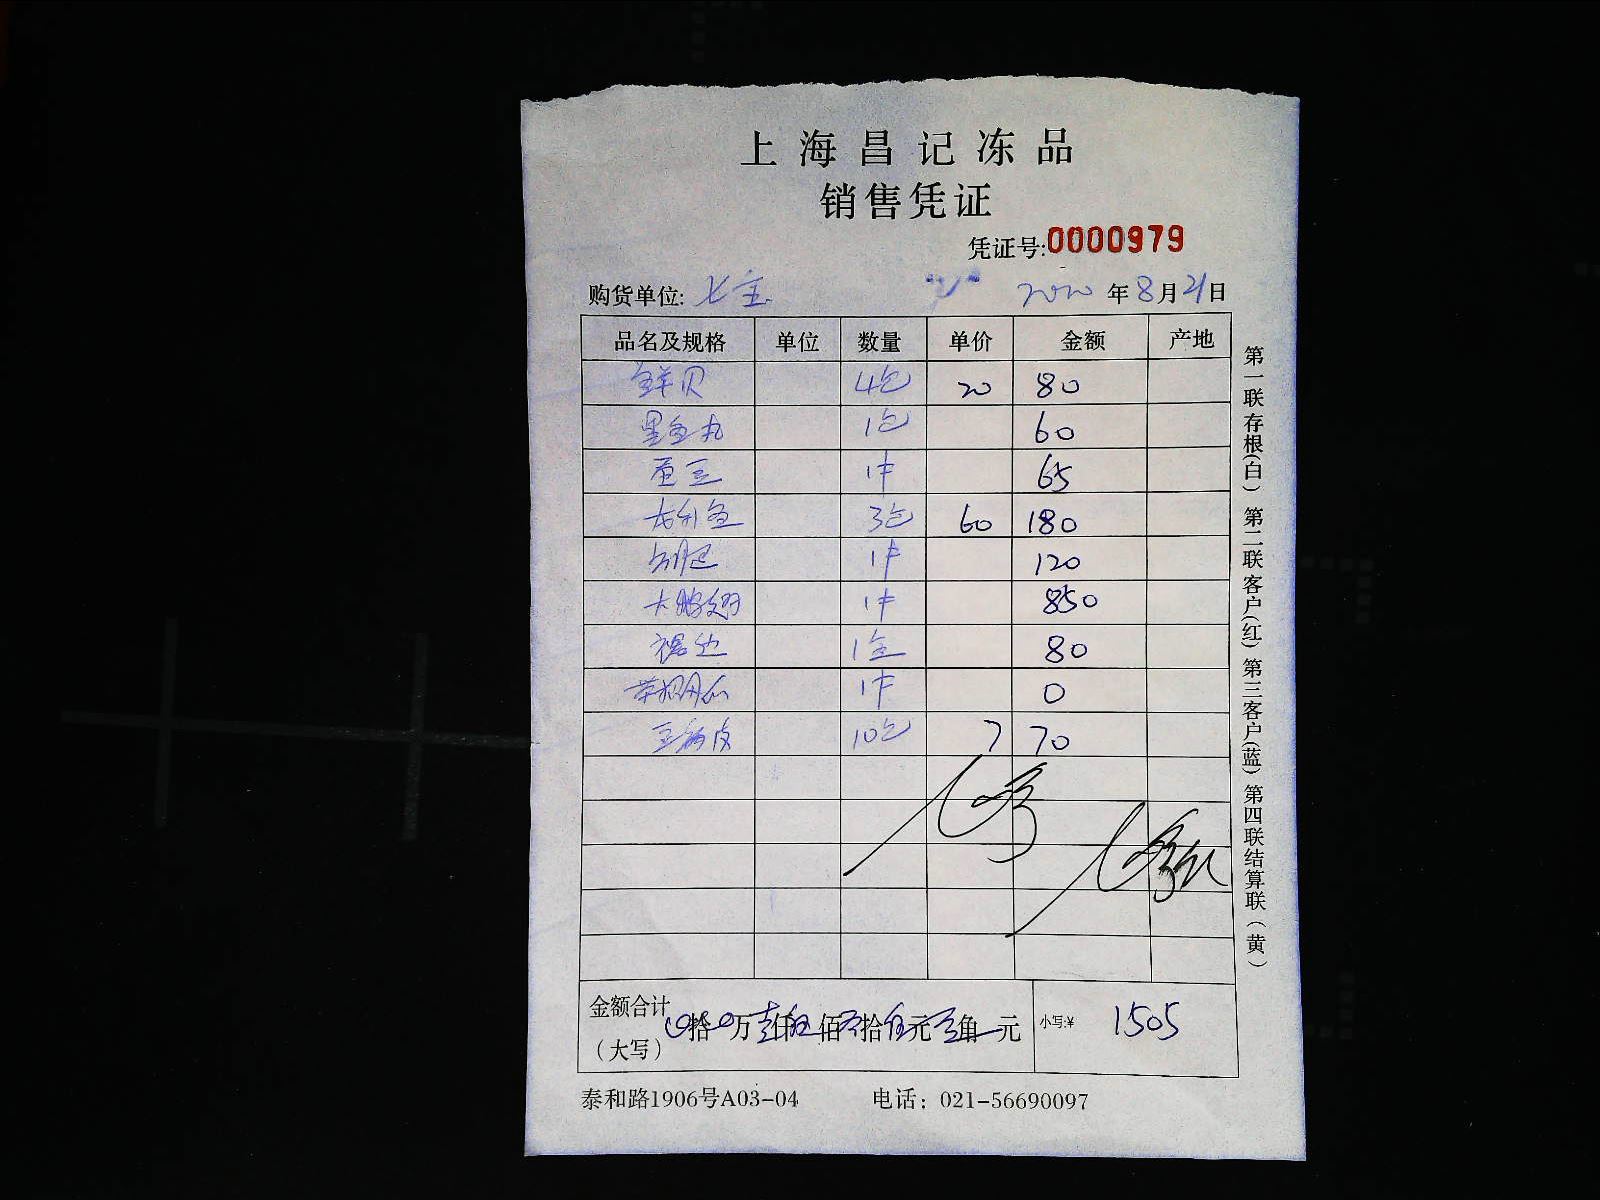 上海昌记冻品
销售凭证
凭证号:0000979
购货单位: 七宝 2020年8月21日
品名及规格 单位 数量 单价 金额 产地
鲜贝 4包 20 80
墨鱼丸 1包 60
蚕豆 1件 65
3包 60 180
1件 120
大鹏翅 1件 850
裙边 1盒 80
1件 0
10包 7 70
金额合计(大写) 拾 万 仟 佰 拾 元 角 元 小写:¥ 1505
泰和路1906号A03-04 电话：021-56690097
第一联存根(白) 第二联客户(红) 第三客户(蓝) 第四联结算联(黄)